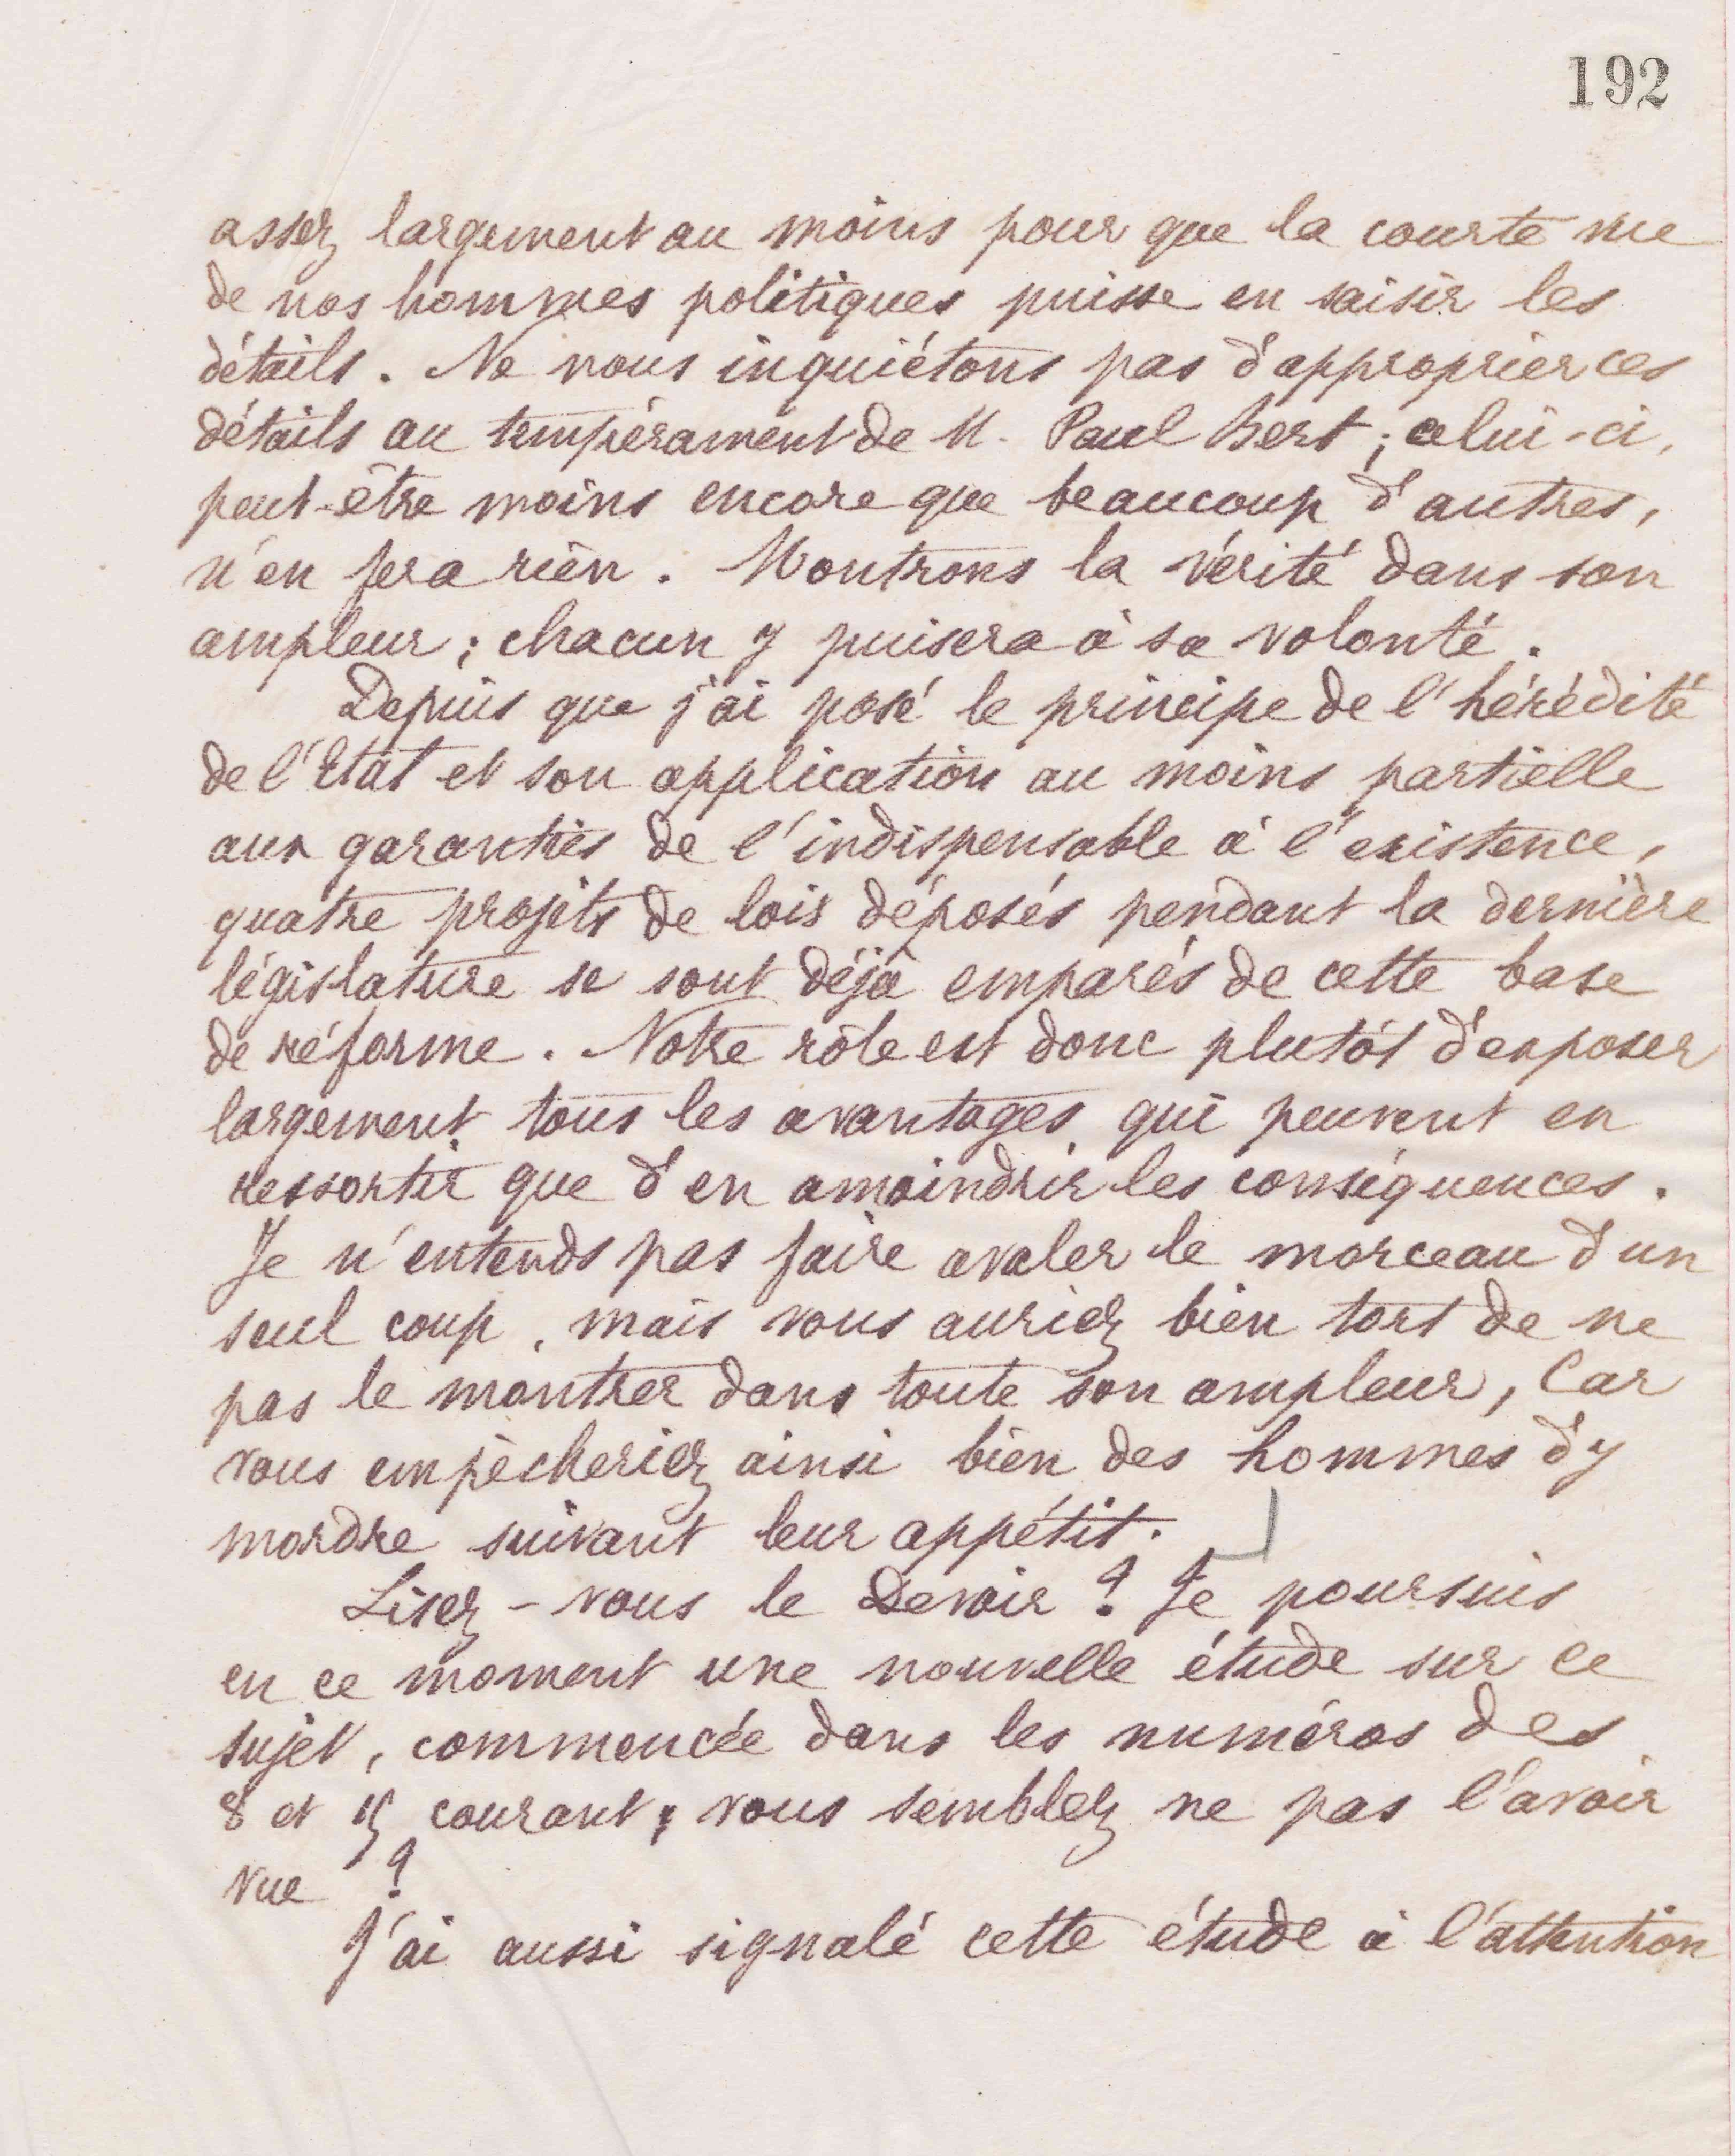 192
assez largement au moins pour que la courte vue
de nos hommes politiques puisse en saisir les
détails. Ne nous inquiétons pas d'approprier ces
détails au tempérament de M. Paul Bert ; celui-ci,
peut-être moins encore que beaucoup d'autres,
n'en fera rien. Montrons la vérité dans son
ampleur ; chacun y puisera à sa volonté.
Depuis que j'ai posé le principe de l'hérédité
de l'Etat et son application au moins partielle
aux garanties de l'indispensable à l'existence,
quatre projets de lois déposés pendant la dernière
législature se sont déjà emparés de cette base
de réforme. Notre rôle est donc plutôt d'exposer
largement tous les avantages qui peuvent en
ressortir que d'en amoindrir les conséquences.
Je n'entends pas faire avaler le morceau d'un
seul coup, mais vous auriez bien tort de ne
pas le montrer dans toute son ampleur, Car
vous empêcheriez ainsi bien des hommes d'y
mordre suivant leur appétit.
Lisez-vous le Devoir ? Je poursuis
en ce moment une nouvelle étude sur ce
sujet, commencée dans les numéros des
8 et 15 courant ; vous semblez ne pas l'avoir
vue ?
J'ai aussi signalé cette étude à l'attention